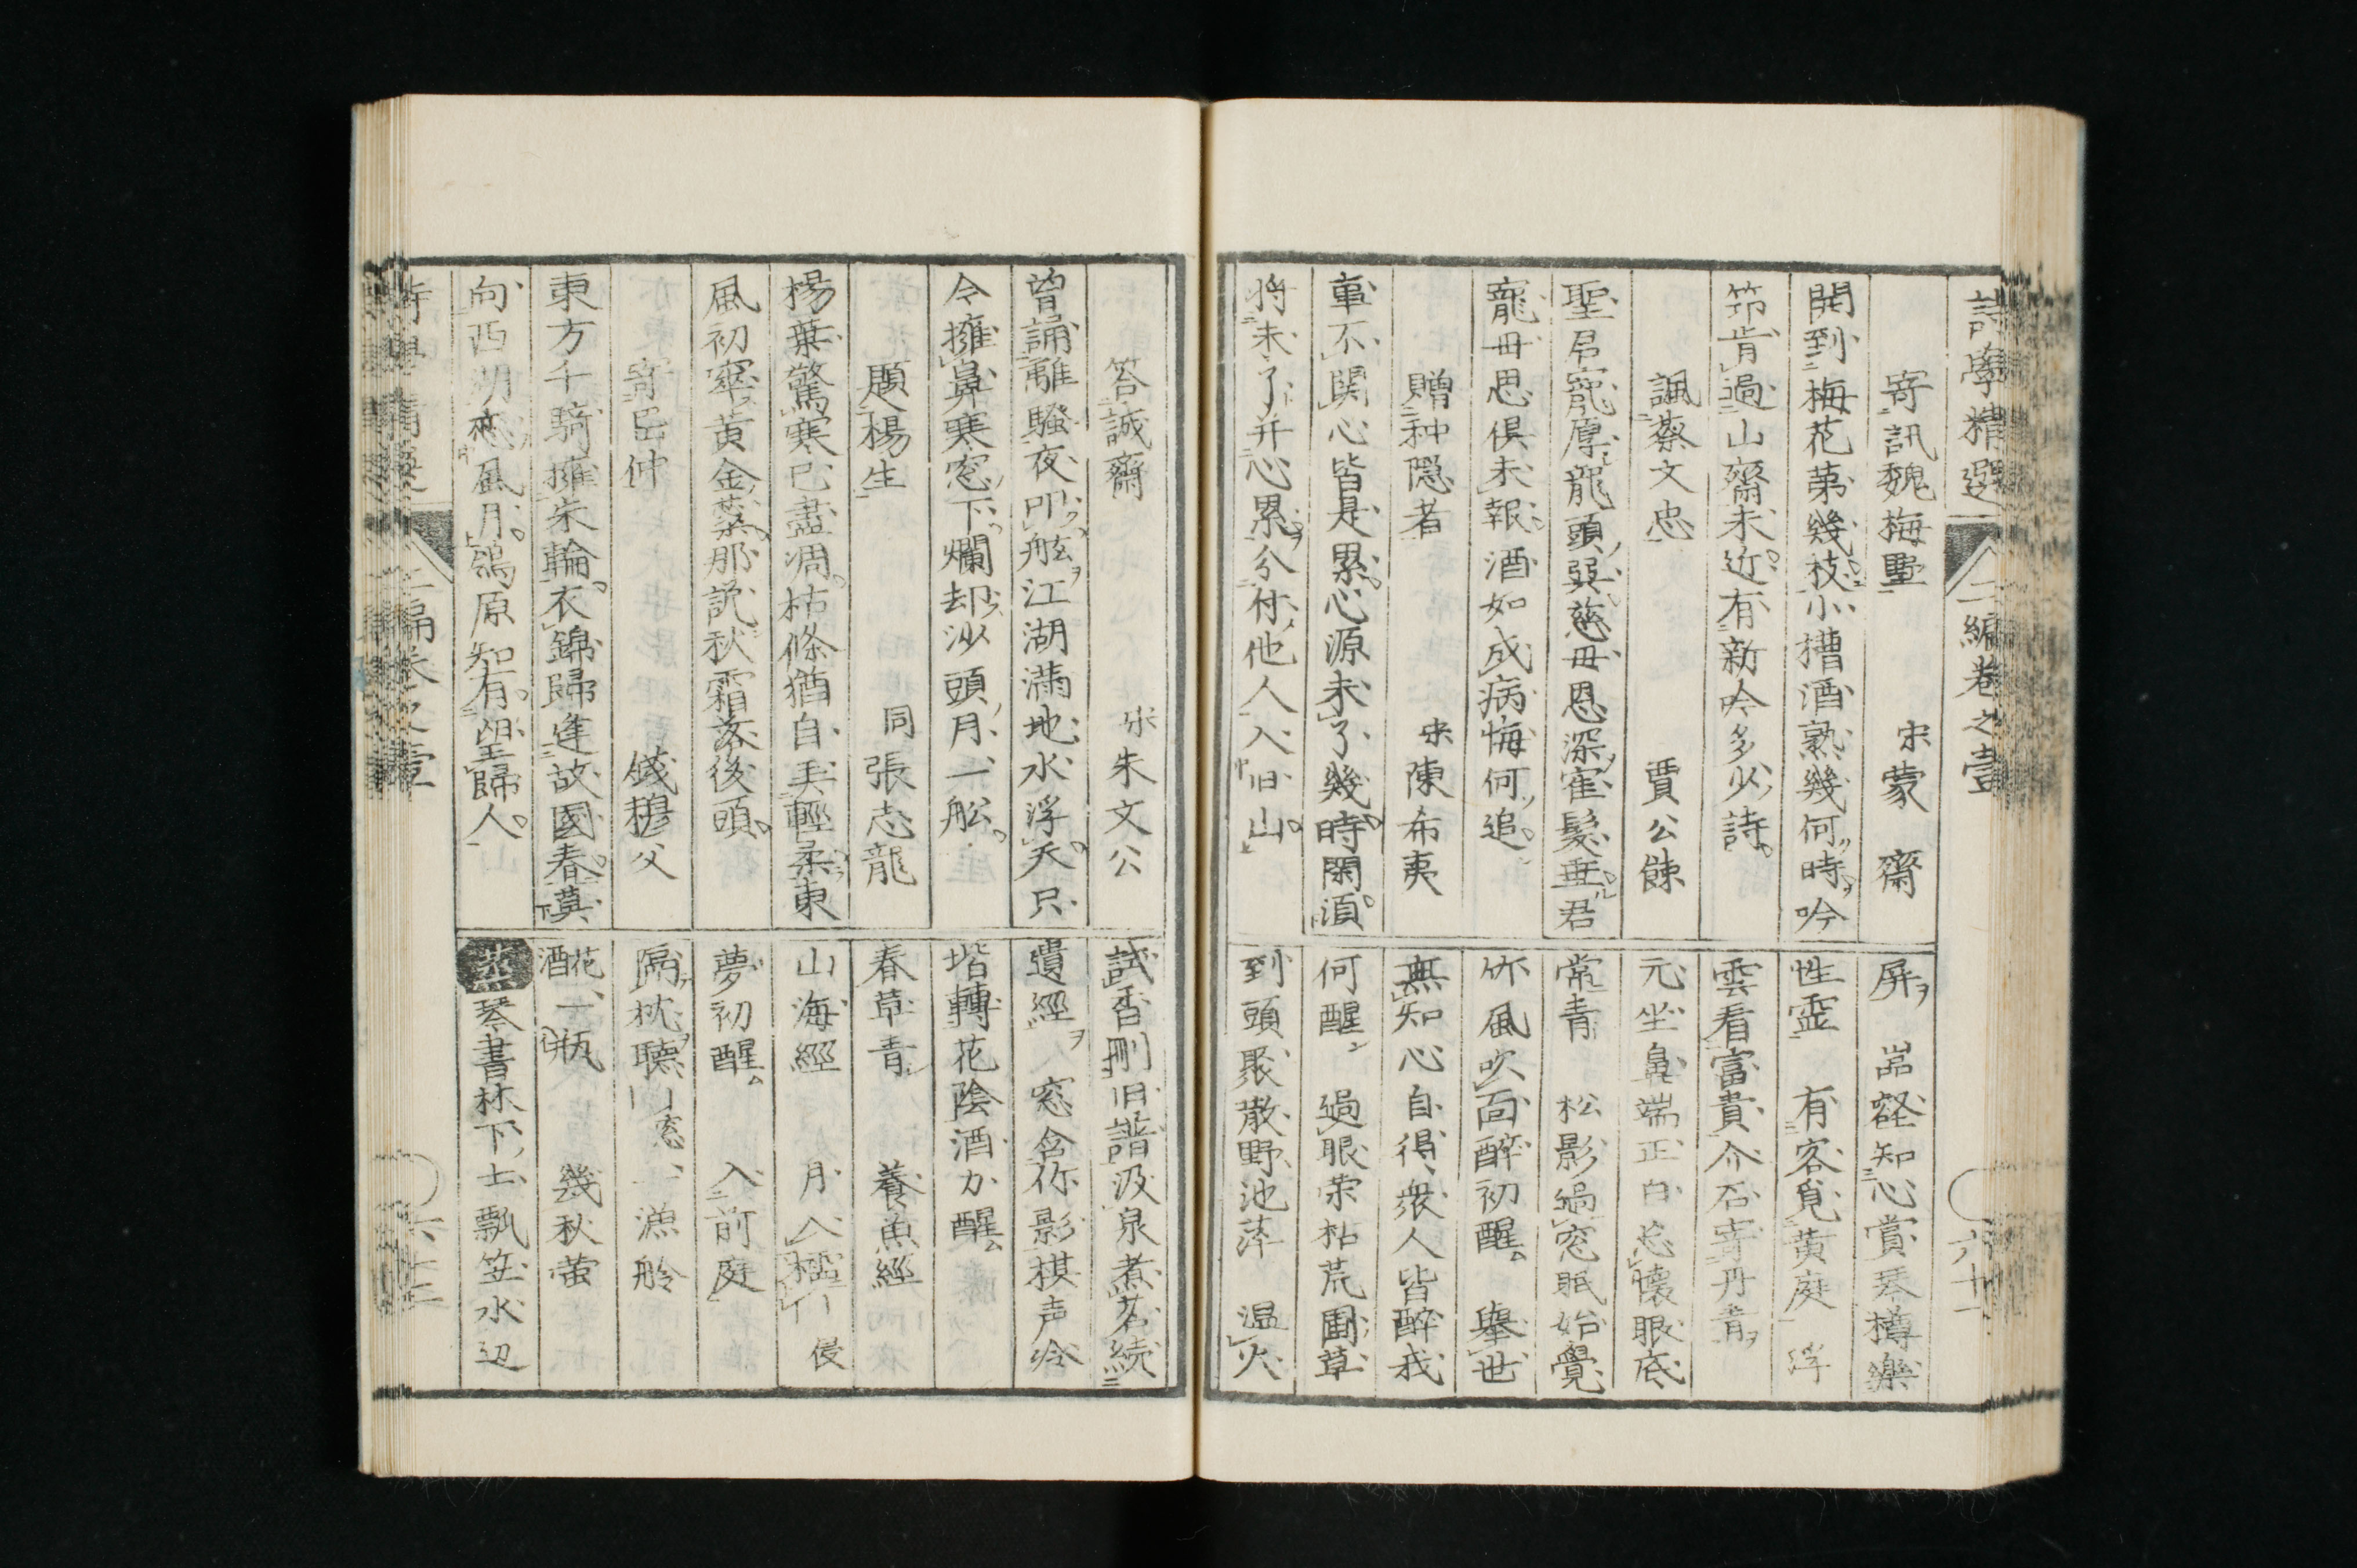 詩學精選 二編卷之壹 六十一
寄訊魏梅墅 宋蒙齋
開到梅花第幾枝小槽酒熟幾何時吟
笻肯過山齋未近有新吟多少詩
諷蔡文忠 賈公餗
聖君寵厚龍頭選慈母恩深鶴髮垂君
寵母恩俱未報酒如成病悔何追
贈种隠者 宋陳希夷
事不関心皆是累心源未了幾時閑湏
将未了并心累分付他人入旧山
屏 知心賞琴樽樂
性霊 有客覓黄庭 浮
雲看富貴介石寄丹青
元坐鼻端正白忘懐眼底
常青 松影過窓眠始覺
竹風吹面醉初醒 舉世
無知心自得衆人皆醉我
何醒 過眼荣枯荒圃草
到頭聚散野池萍 温火
答誠齋 宋朱文公
曽誦離騒夜叩舷江湖滿地水浮天只
今擁鼻寒窓下爛却沙頭月一舩
題楊生 同張志龍
楊葉驚寒已盡凋柿條猶自美輕柔東
風初窣黄金蘂那説秋霜落後頭
寄岳仲 錢穆父
東方千騎擁朱輪衣錦歸逢故國春莫
向西湖恋風月鴒原知有望歸人
試香刪旧譜汲泉煮茗続
遺經 窓含竹影棋声冷
堦轉花陰酒力醒
春草青 養魚經
山海經 月入櫺 侵
夢初醒 入前庭
隔枕聴 窓 漁舲
花一瓶酒 幾秋蛍
琴書林下士瓢笠水辺
詩學精選 二編卷之壹 六十二